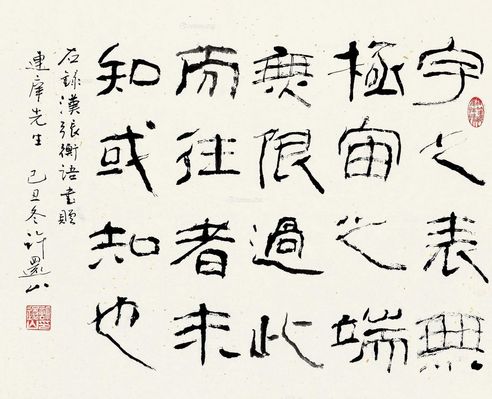 宇之表無
極宙之端
無限過此
而往者未
知或知也
右錄漢張衡語書贈
先生 己丑冬 許